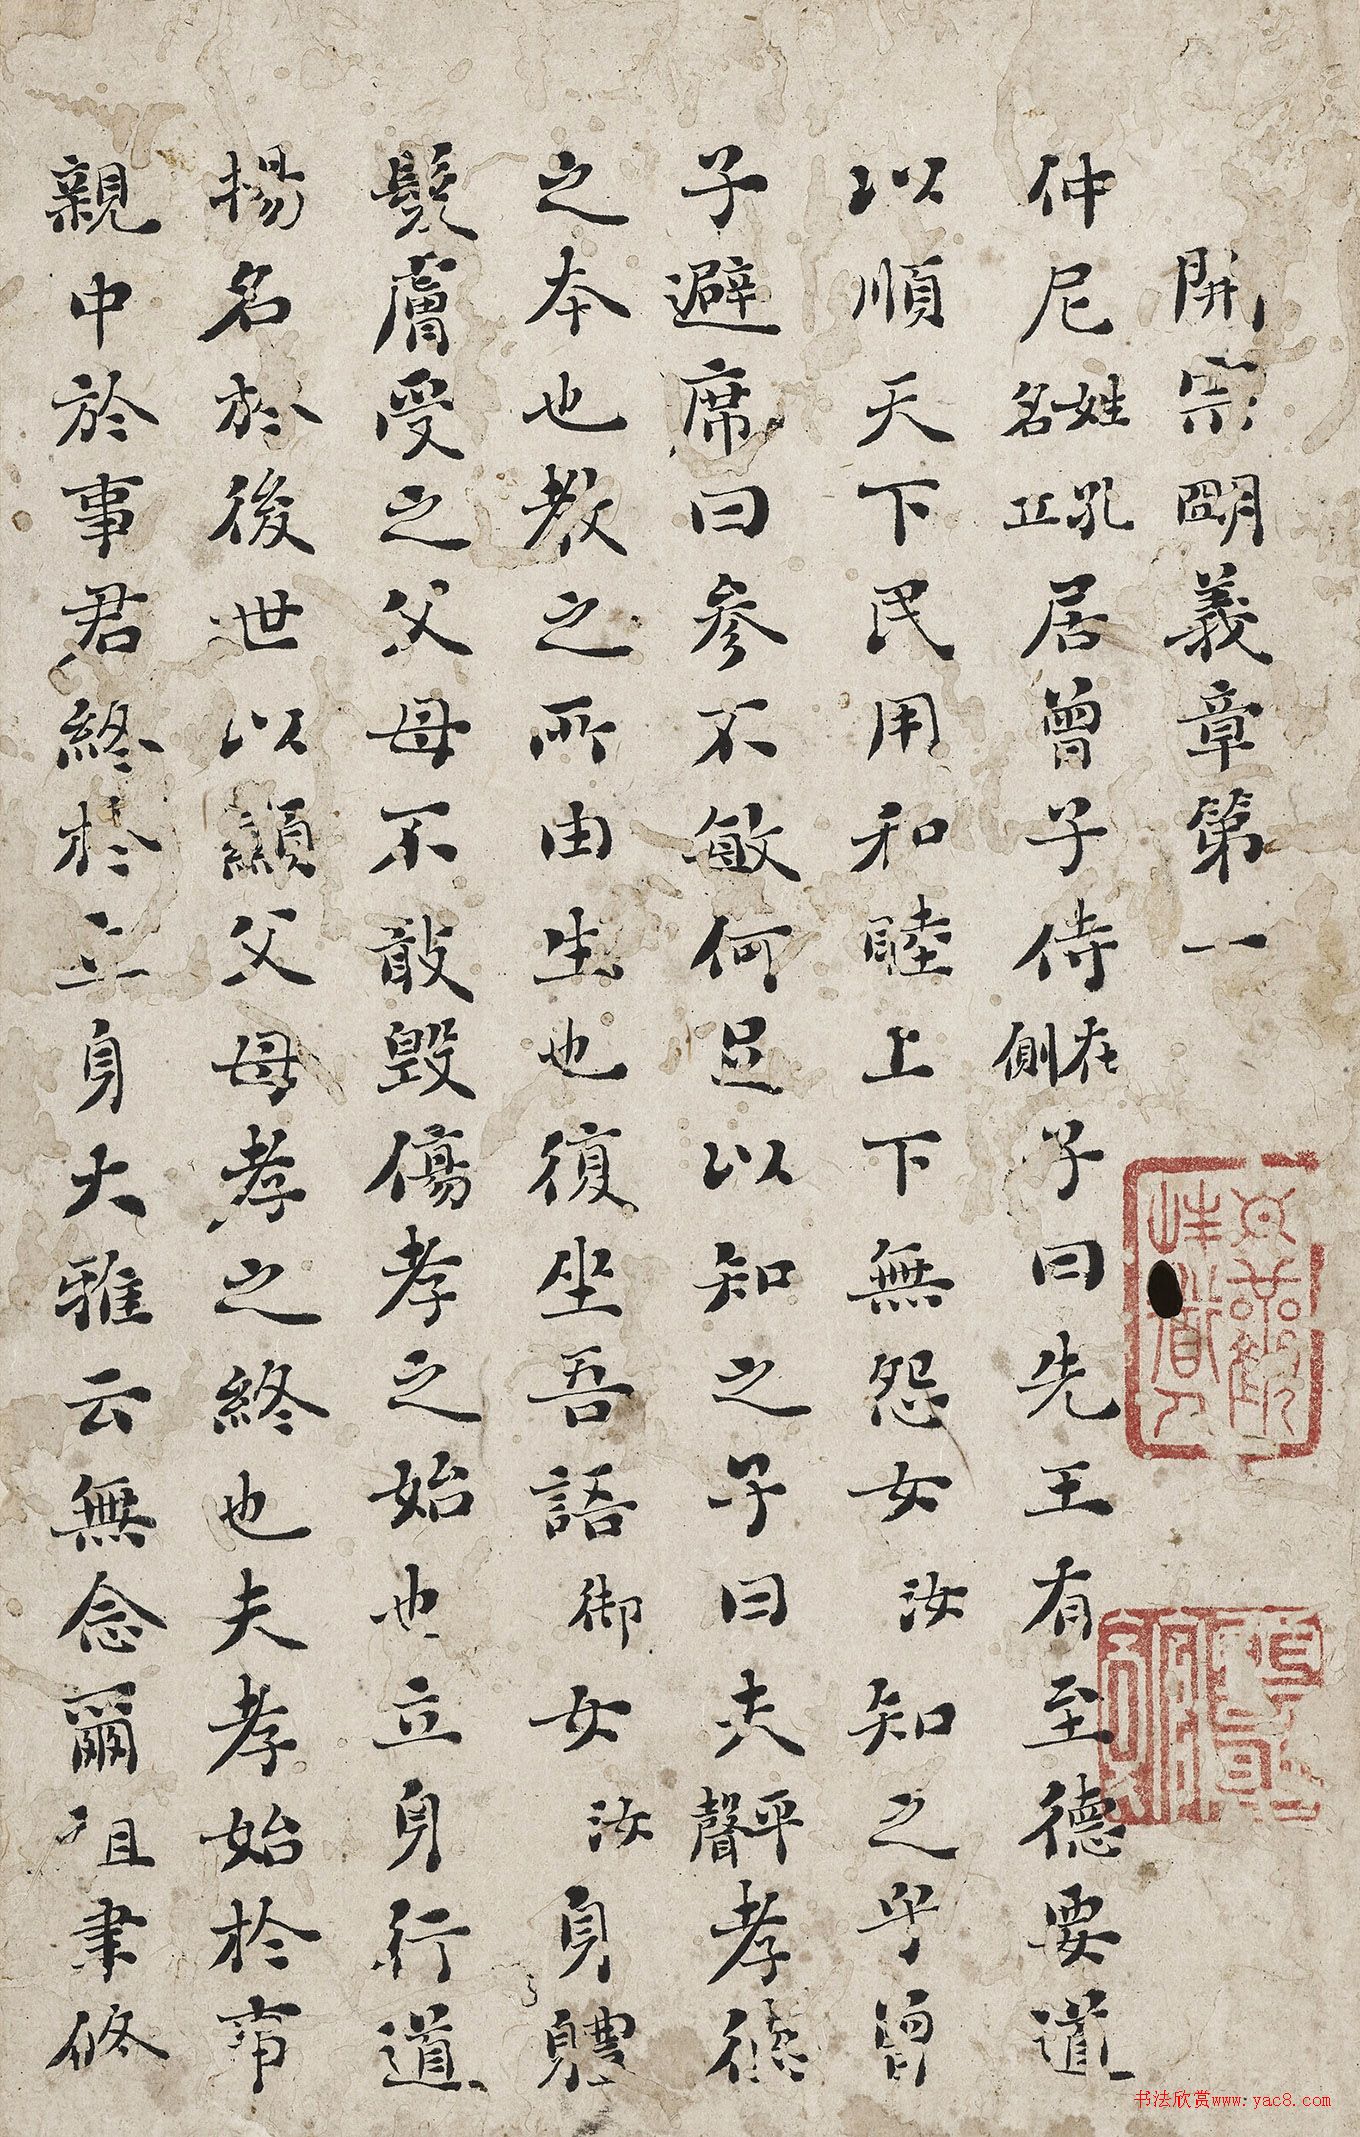 開宗明義章第一
仲尼姓孔名丘居曾子侍在側子曰先王有至德要道
以順天下民用和睦上下無怨女汝知之乎曾
子避席曰參不敏何足以知之子曰夫平聲孝德
之本也教之所由生也復坐吾語御女汝身體
髮膚受之父母不敢毀傷孝之始也立身行道
揚名於後世以顯父母孝之終也夫孝始於事
親中於事君終於立身大雅云無念爾祖聿脩
书法欣赏www.yac8.com